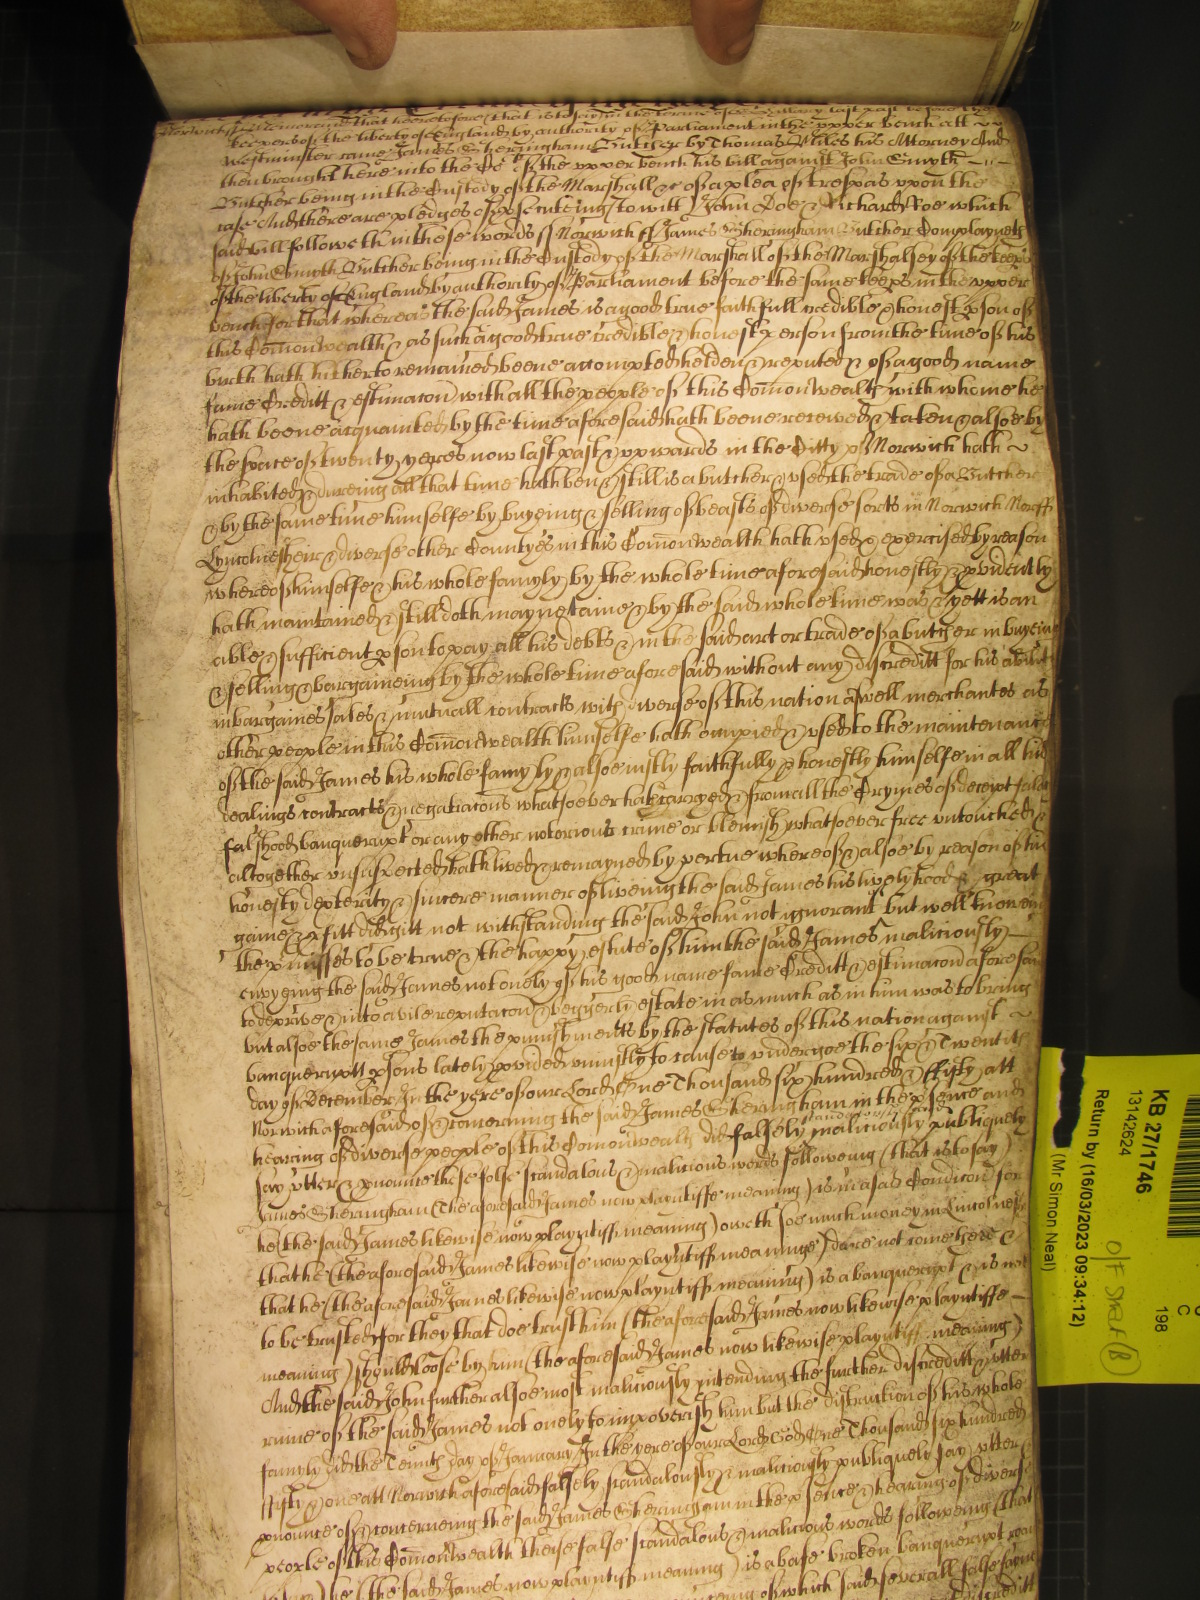 Norwich ss Memorand that heretofore that is to say in the terme of St Hillary last past before the
keepers of the liberty of England by authority of Parliament in the upper bench att
Westminster came James Sheringham Butcher by Thomas Miles his Attorney And
then brought here into the Co:rt of the upper bench his bill against John Smyth
Butcher being in the Custody of the Marshall &c of a plea of trespas upon the
case And there are pledges of psecuteing to witt John Doe & Richard Roe which
said bill followeth in these words ss Norwich ss James Sheringham Butcher Complayneth
of John Smyth Butcher being in the Custody of the Marshall of the Marshalsey of the keeps
of the liberty of England by authority of Parliament before the same keeps in the upper
bench for that whereas the said James is a good true faithfull credible & honest pson of
this Comonwealth & as such a good true credible & honest person from the time of his
birth hath hitherto remained beene accompted holden & reputed & of a good name
fame Creditt & estimacon with all the people of this Comonwealth with whome he
hath beene acquainted by the time aforesaid hath beene receiwed & taken & alsoe by
the space of twenty yeres now last past & upwards in the Citty of Norwich hath
inhabited & dureing all that time hath ben & still is a butcher & used the trade of a Butcher
& by the same time himselfe by buyeing & selling of beasts of diverse sorts in Norwich Norff
Lyncolnesheir & diverse other Countyes in this Comonwealth hath used & exercised by reason
whereof himselfe & his whole famyly by the whole time aforesaid honestly & pvidently
hath maintained & still doth maynetaine & by the said whole time was & yett is an
able & sufficient pson to pay all his debts & in the said art or trade of a butcher in buyeing
& selling & bargaineing by the whole time aforesaid without any discreditt for his ability
in bargaines sales & mutuall contracts with diverse of this nation aswell merchantes as
other people in this Comonwealth himselfe hath occupied & used to the maintenance
of the said James his whole famyly & alsoe iustly faithfully & honestly himselfe in all his
dealings contracts & negotiacons whatsoever hath carryed & from all the Crymes of deceipt
falshood banquerupt or any other notorious crime or blemish whatsoever free untouched &
altogether unsuspected hath lived & remayned by vertue whereof & alsoe by reason of his
honesty dexterity & sincere manner of liveing the said James his livelyhood & great
gaine & pfitt did gitt not withstanding the said John not ignorant but well knowein
the pmisses to be true & the happy estate of him the said James maliciously
envyeing the said James not onely of his good name fame Creditt & estimacon aforesaid
to deprive & into a vile reputacon & beggerly estate in as much as in him was to bring
but alsoe the same James the punishments by the statutes of this nation against
banquerupt psons lately pvided uniustly to cause to undergoe the six & Twentith
day of December In the yere of our Lord One Thousand six hundred & ffifty att
Norwich aforesaid of & concerning the said James Sheringham in the psence and
hearing of diverse people of this Comonwealth did falsely scandalously maliciously & publiquely
say utter & pnounce these false scandalous & malicious words followeing (that is to say)
James Sheringham (the aforesaid James now playntiffe meaning) is in a sad Condicon for
he (the said James likewise now playntiff meaning) oweth soe much money in Lincolnes
that he (the aforesaid James likewise now playntiff meaninge) dare not come there &
that he (the aforesaid James likewise now playntiff meaning) is a banquerupt & is not
to be trusted for they that doe trust him (the aforesaid James now likewise playntiffe
meaning) should loose by him (the aforesaid James now likewise playntiff meaning)
And the said John further alsoe most maliciously intending the further discreditt & utter
ruine of the said James not onely to impoverish him but the distruction of his whole
famyly did the Tennth day of January In the yere of our Lord God One Thousand six hundred
ffifty & one att Norwich aforesaid falsely scandalously & maliciously publiquely say utter
pnounce of & concerneing the said James Sheringham in the psence & hearing of diverse
people of this Comonwealth these false scandalous & malicious words followeing (that
he (the said James now playntiff meaning) is a base broken banquerupt
of which said severall false
discreditt
KB 27/1746
13142624
Return by (16/03/2023 09:34:12)
(Mr Simon Neal)
198
C